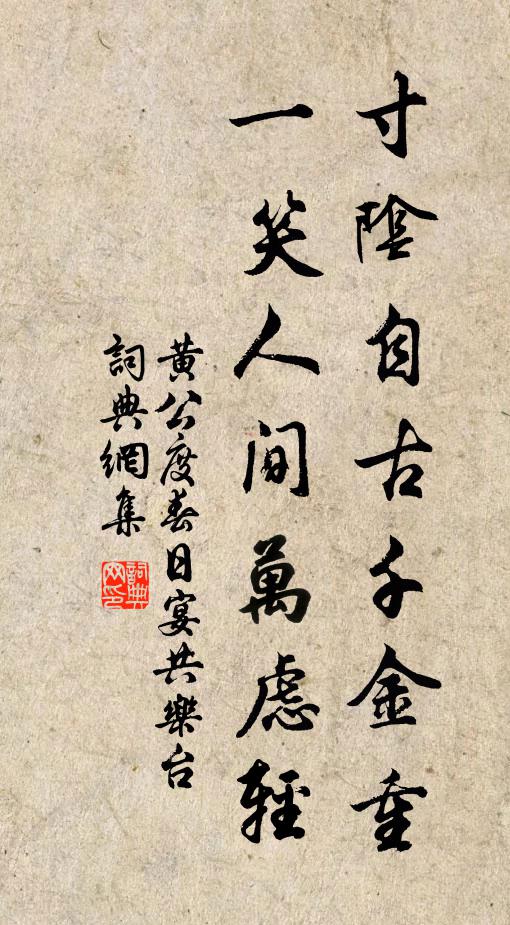 寸陰自古千金重
一笑人間萬慮輕
黃公度春日宴共樂台
詞典網集
詞典网印